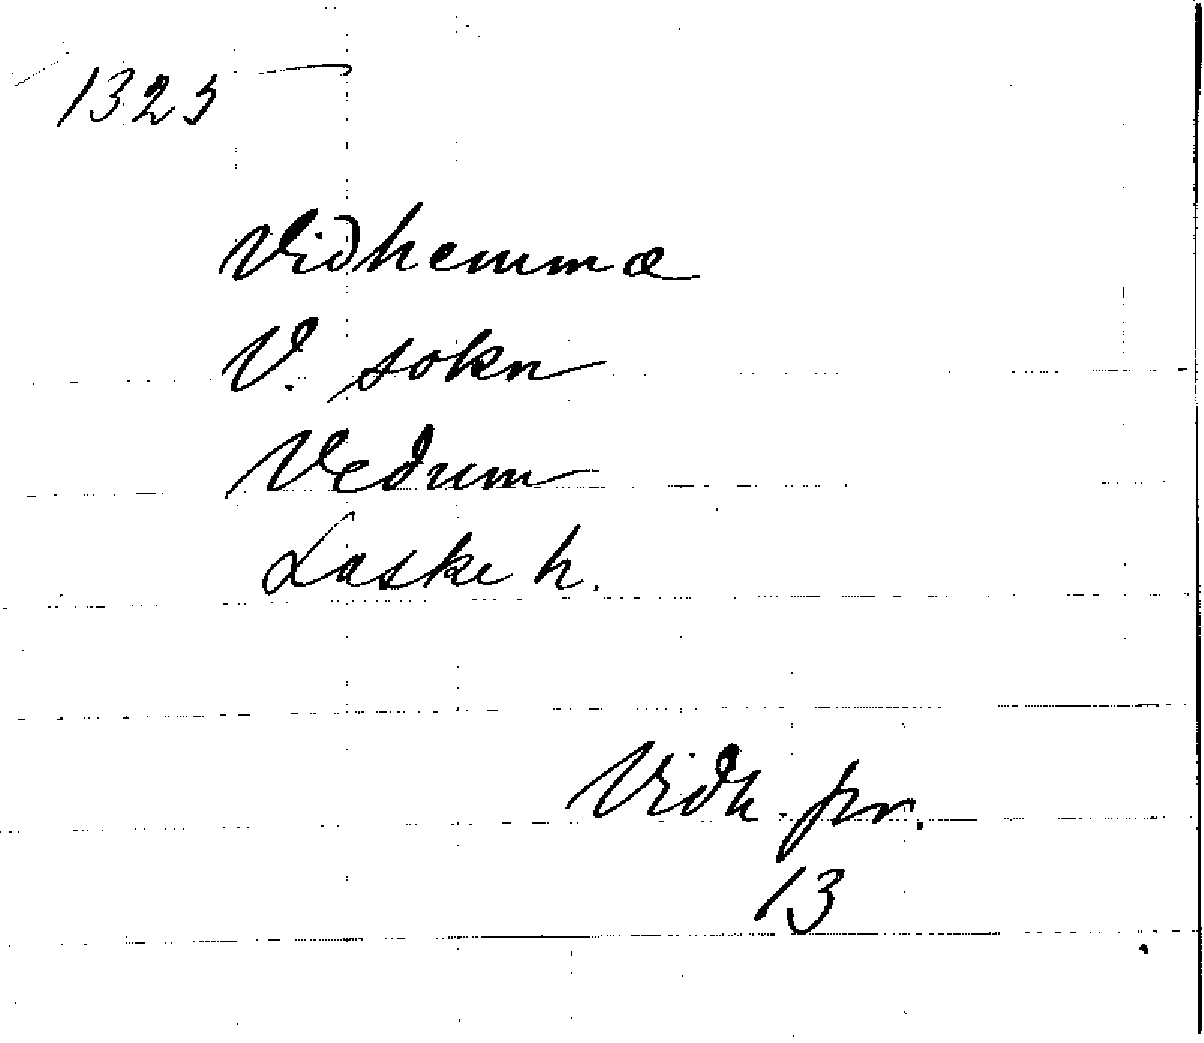 1325
Vidhemma
V. sokn
Vedum
Laske h.
Vidh. pr.
13